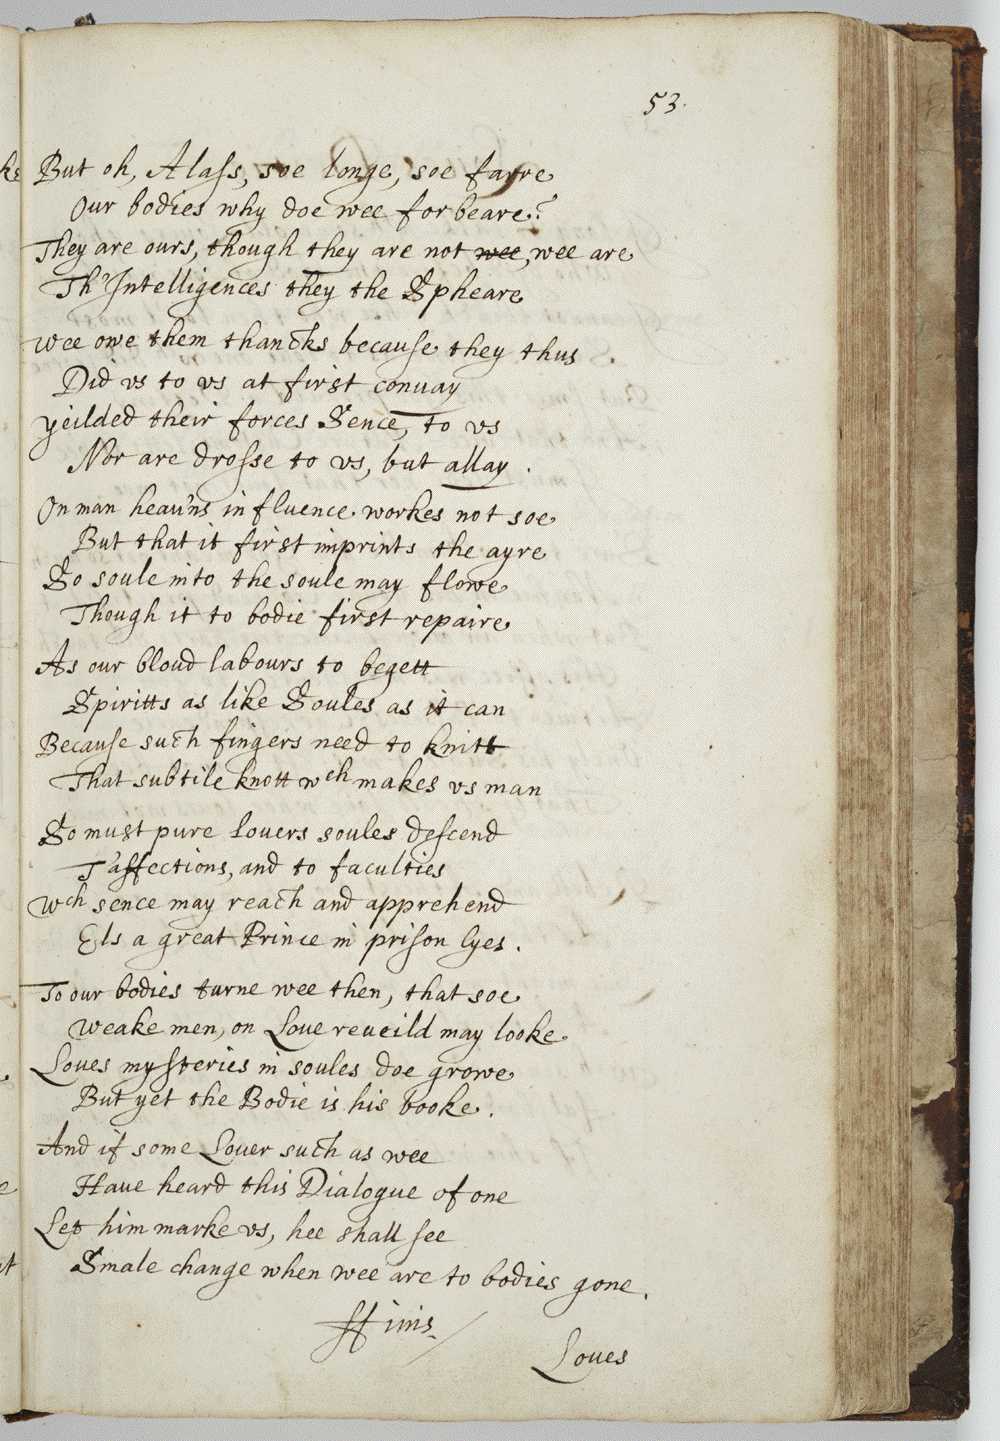 53.
But oh, Alass, soe longe, soe farre
Our bodies why doe wee forbeare?
They are ours, though they are not wee, wee are
Th'Intelligences they the Spheare
wee owe them thancks because they thus
Did vs to vs at first convay
yeilded their forces Sence, to vs
Nor are drosse to vs, but allay.
On man heau'ns influence workes not soe
But that it first imprints the ayre
So soule into the soule may flowe
Though it to bodie first repaire
As our bloud labours to begett
Spiritts as like Soules as it can
Because such fingers need to knitt
That subtile knott wch makes vs man
So must pure louers soules descend
T'affections, and to faculties
Wch sence may reach and apprehend
Els a great Prince in prison lyes.
To our bodies turne wee then, that soe
Weake men, on Loue reueild may looke
Loues mysteries in soules doe growe
But yet the Bodie is his booke.
And if some Louer such as wee
Haue heard this Dialogue of one
Let him marke vs, hee shall see
Smale change when wee are to bodies gone.
ffinis
Loues